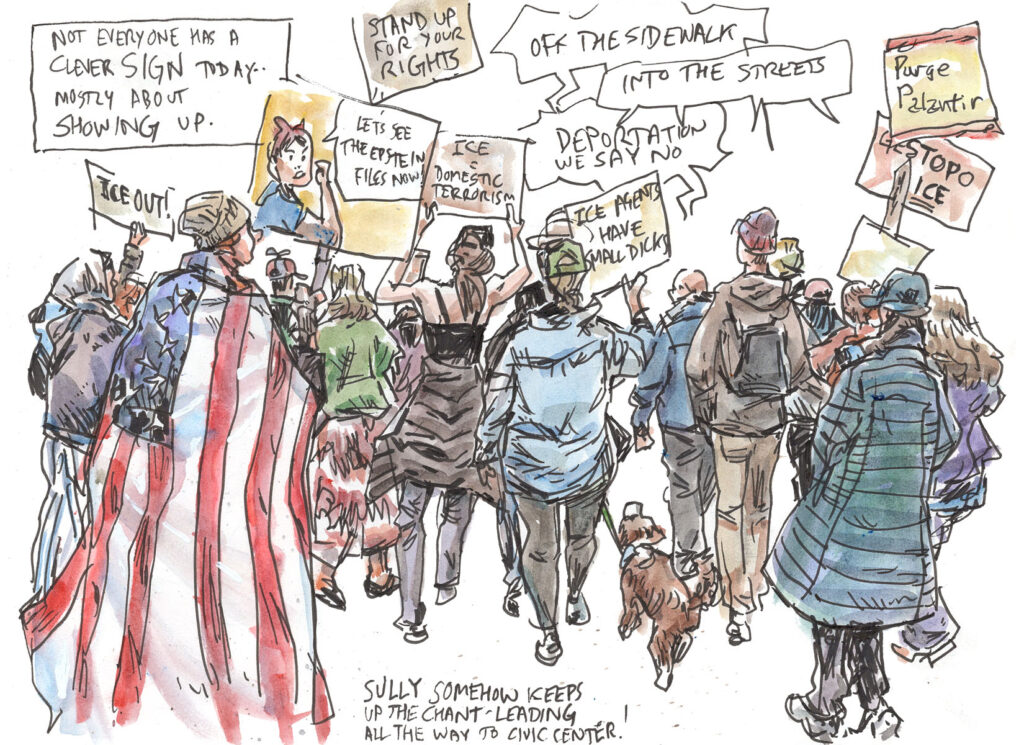 NOT EVERYONE HAS A
CLEVER SIGN TODAY..
MOSTLY ABOUT
SHOWING UP.
STAND UP
FOR YOUR
RIGHTS
OFF THE SIDEWALK
INTO THE STREETS
DEPORTATION
WE SAY NO
LETS SEE
THE EPSTEIN
FILES NOW!
ICE
=
DOMESTIC
TERRORISM
ICE OUT!
ICE AGENTS
HAVE
SMALL DICKS
Purge
Palantir
GESTOPO
ICE
SULLY SOMEHOW KEEPS
UP THE CHANT-LEADING
ALL THE WAY TO CIVIC CENTER!